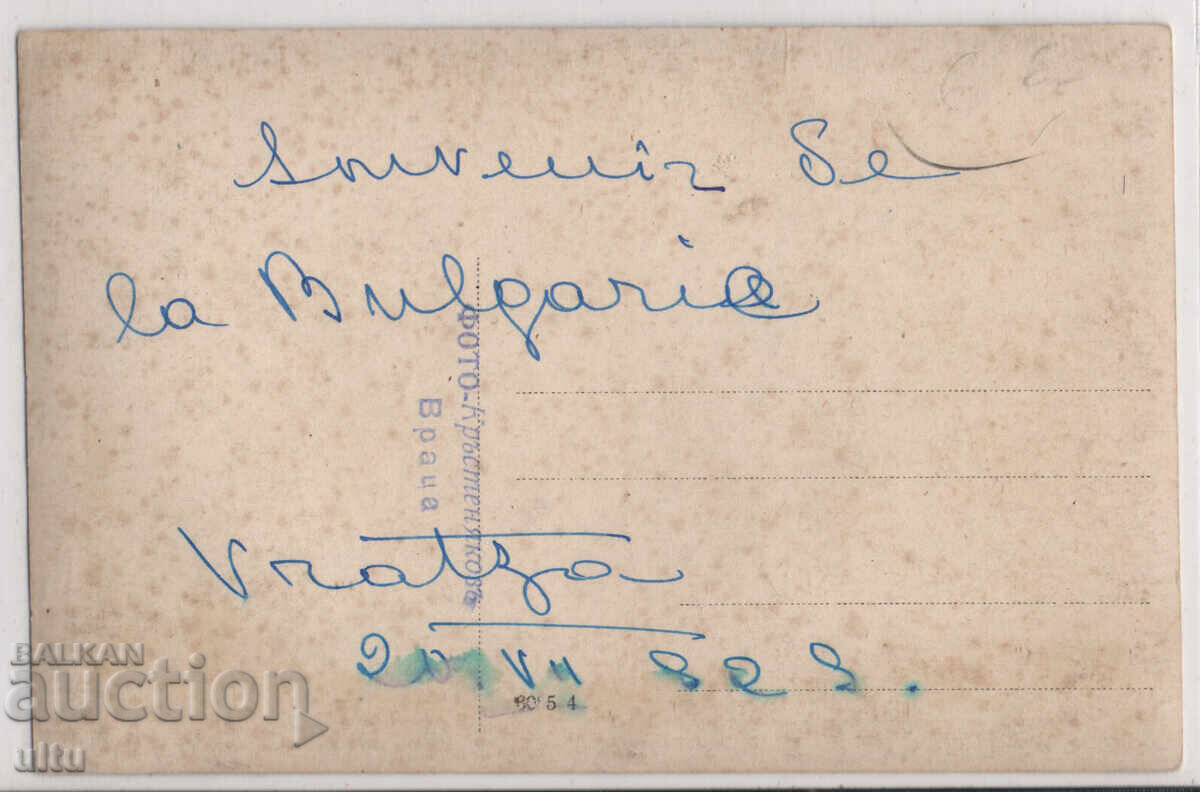 Souvenir de
la Bulgarie
ФОТО-Кръстеняковъ
Враца
Vratza
20. VII 929.
6054
BALKAN
auction
ultu